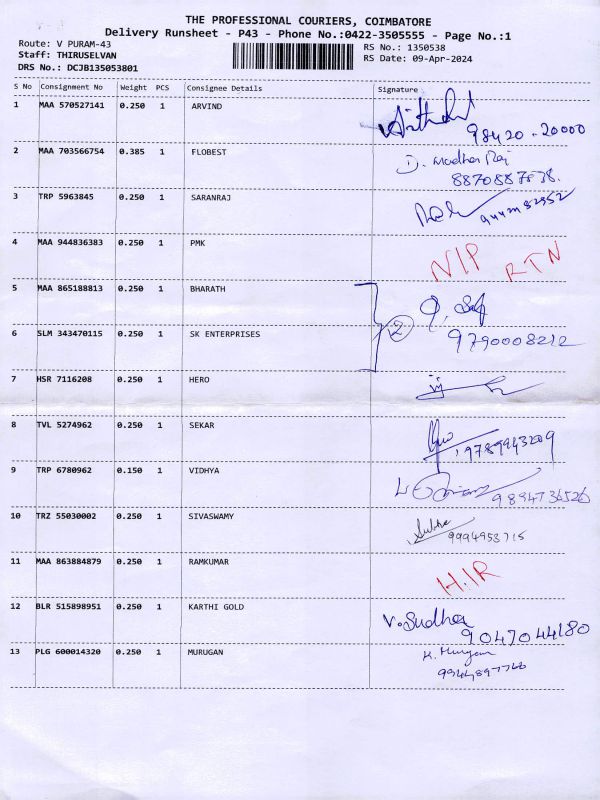 THE PROFESSIONAL COURIERS, COIMBATORE
Delivery Runsheet - P43 - Phone No.:0422-3505555 - Page No.:1
Route: V PURAM-43
RS No.: 1350538
Staff: THIRUSELVAN
RS Date: 09-Apr-2024
DRS No.: DCJB135053801
S No Consignment No Weight PCS Consignee Details Signature
1 MAA 570527141 0.250 1 ARVIND
98420-20000
2 MAA 703566754 0.385 1 FLOBEST D. Madhan Raj
8870887878.
3 TRP 5963845 0.250 1 SARANRAJ
4 MAA 944836383 0.250 1 PMK NIP RTN
5 MAA 865188813 0.250 1 BHARATH
2
6 SLM 343470115 0.250 1 SK ENTERPRISES 9790008212
7 HSR 7116208 0.250 1 HERO
8 TVL 5274962 0.250 1 SEKAR 9789943209
9 TRP 6780962 0.150 1 VIDHYA 9894736526
10 TRZ 55030002 0.250 1 SIVASWAMY 9994953715
11 MAA 863884879 0.250 1 RAMKUMAR H.IR
12 BLR 515898951 0.250 1 KARTHI GOLD V.Sudha
9047044180
13 PLG 600014320 0.250 1 MURUGAN K. Murugan
9944897746